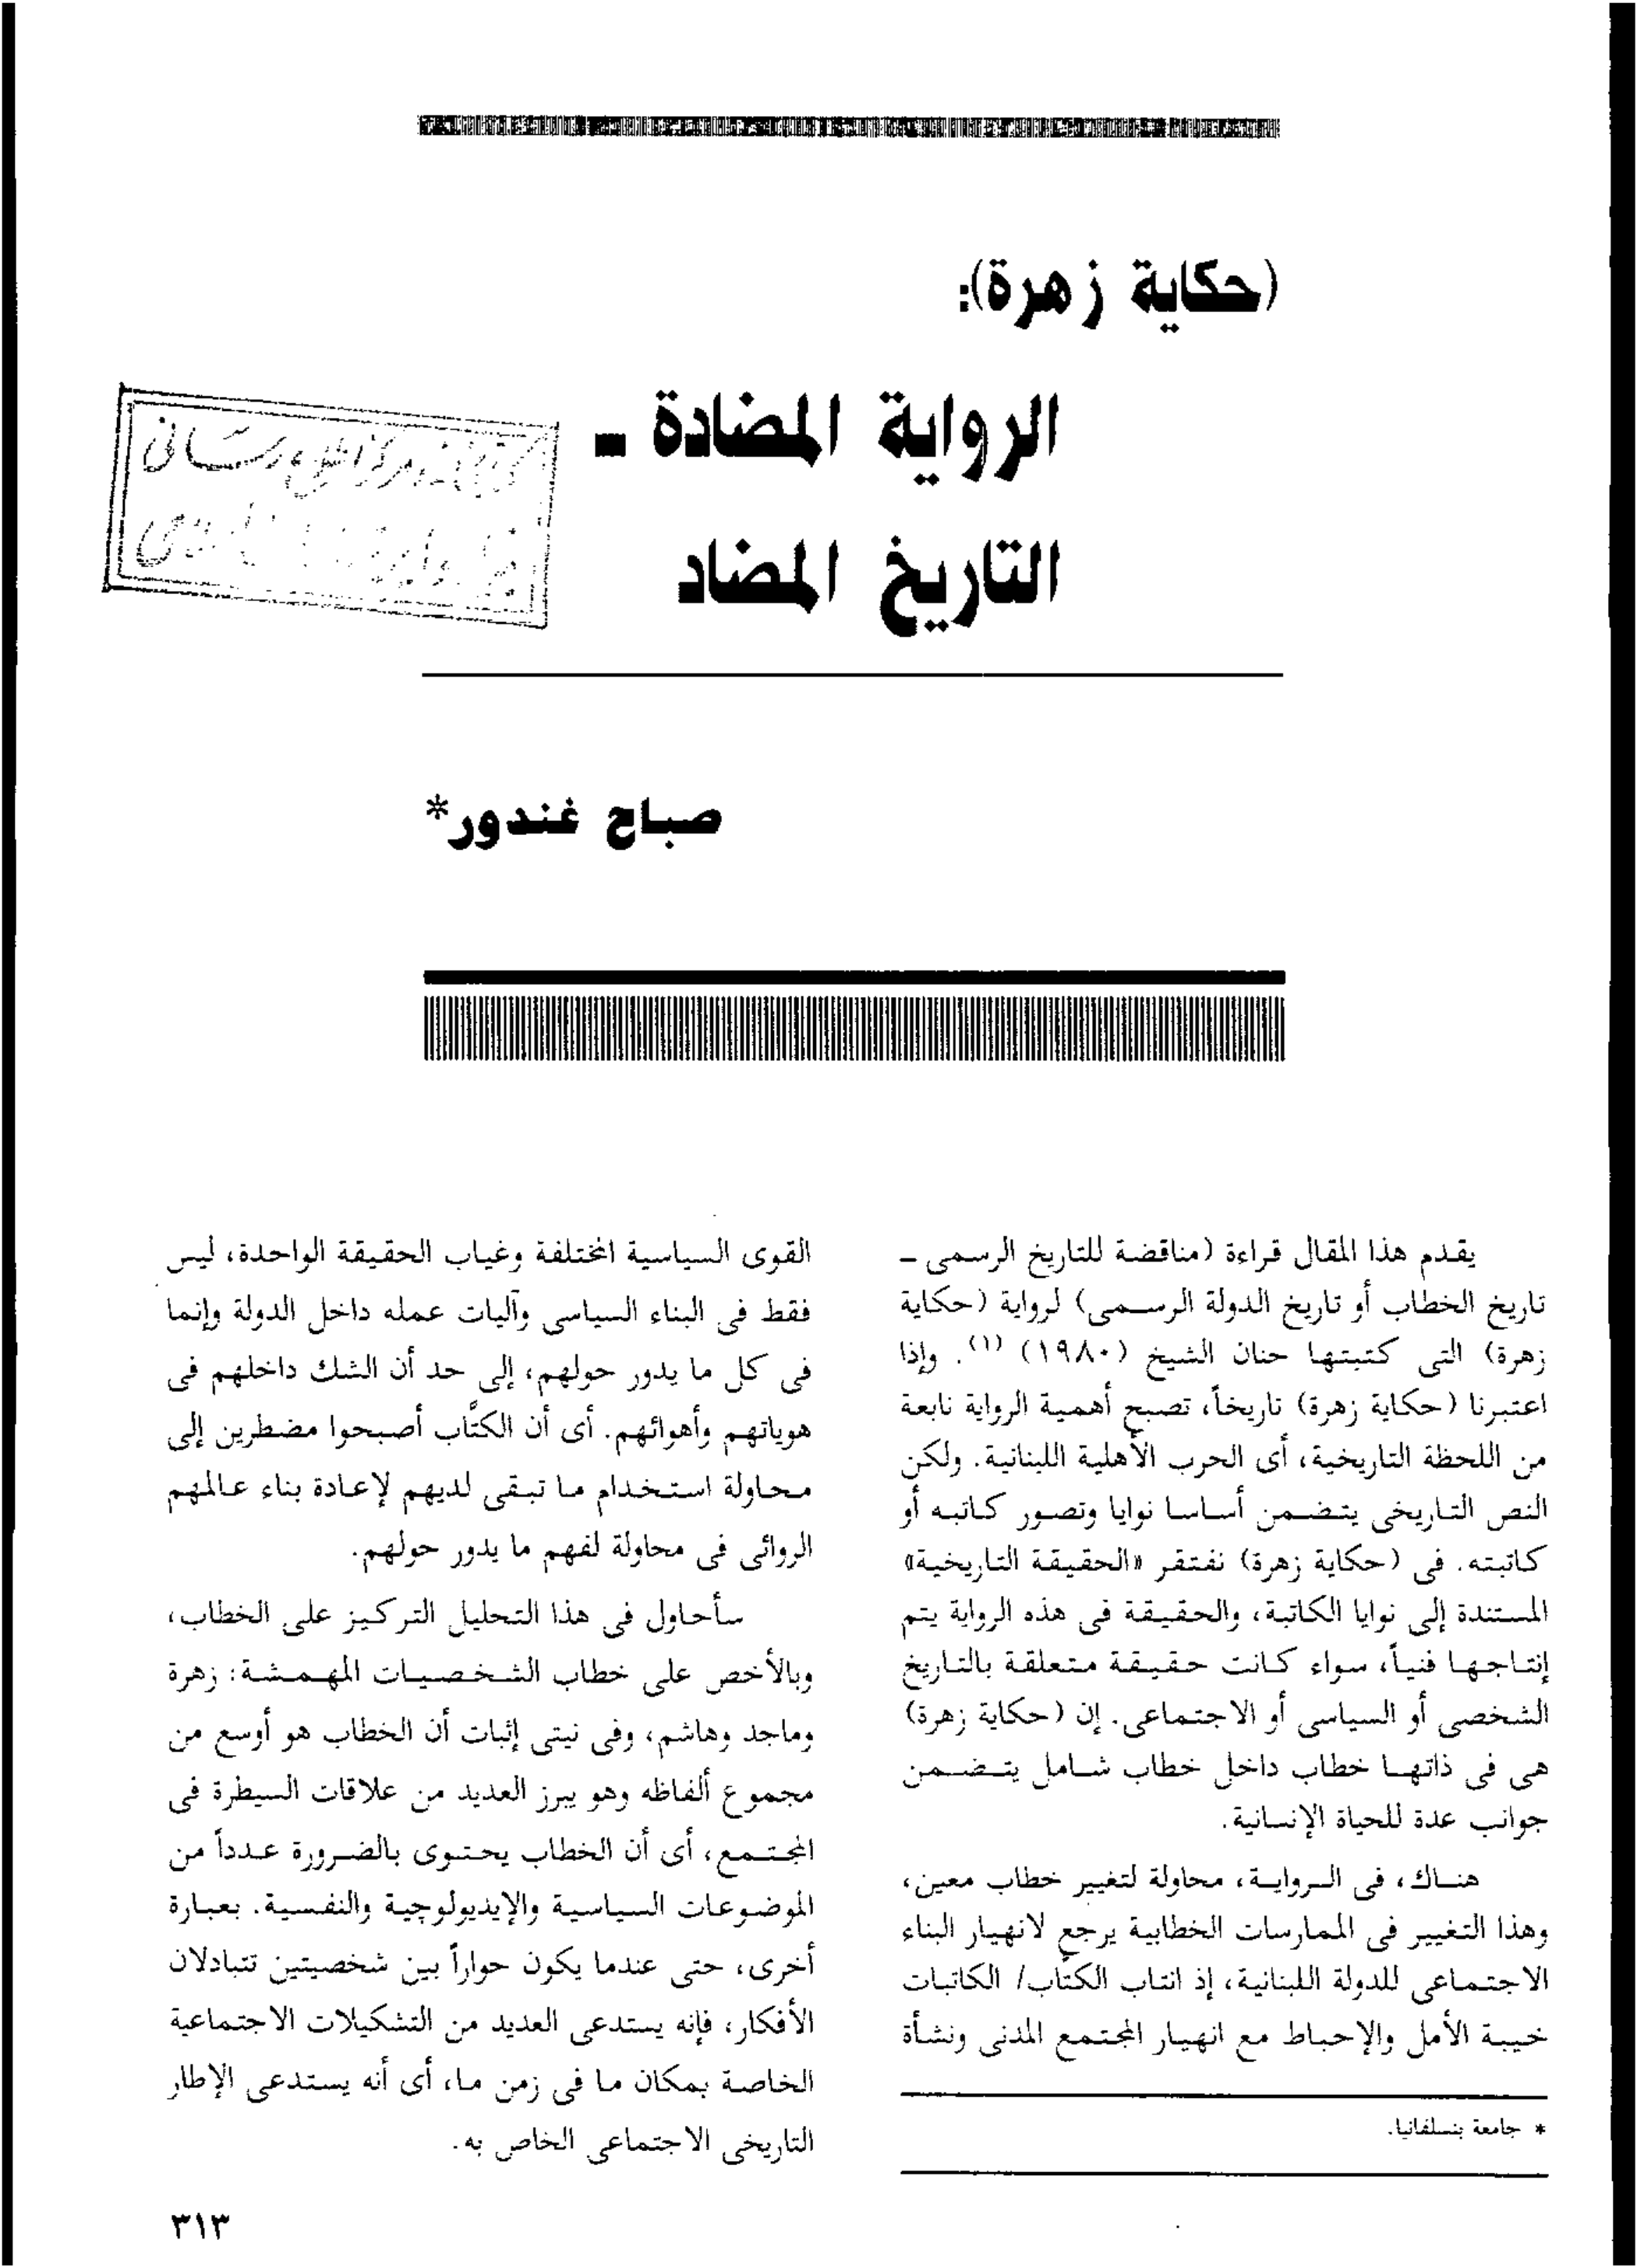 (حكاية زهرة):
الرواية المضادة -
التاريخ المضاد
صباح غندور*
يقدم هذا المقال قراءة (مناقضة للتاريخ الرسمى -
تاريخ الخطاب أو تاريخ الدولة الرسمى) لرواية (حكاية
زهرة) التى كتبتها حنان الشيخ (١٩٨٠) (١). وإذا
اعتبرنا (حكاية زهرة) تاريخاً، تصبح أهمية الرواية نابعة
من اللحظة التاريخية، أى الحرب الأهلية اللبنانية. ولكن
النص التاريخى يتضمن أساسا نوايا وتصور كاتبه أو
كاتبته. فى (حكاية زهرة) نفتقر «الحقيقة التاريخية»
المستندة إلى نوايا الكاتبة، والحقيقة فى هذه الرواية يتم
إنتاجها فنياً، سواء كانت حقيقة متعلقة بالتاريخ
الشخصى أو السياسى أو الاجتماعى. إن (حكاية زهرة)
هى فى ذاتها خطاب داخل خطاب شامل يتضمن
جوانب عدة للحياة الإنسانية.
هناك، فى الرواية، محاولة لتغيير خطاب معين،
وهذا التغيير فى الممارسات الخطابية يرجع لانهيار البناء
الاجتماعى للدولة اللبنانية، إذ انتاب الكتّاب/ الكاتبات
خيبة الأمل والإحباط مع انهيار المجتمع المدنى ونشأة
* جامعة بنسلفانيا.
القوى السياسية المختلفة وغياب الحقيقة الواحدة، ليس
فقط فى البناء السياسى وآليات عمله داخل الدولة وإنما
فى كل ما يدور حولهم، إلى حد أن الشك داخلهم فى
هوياتهم وأهوائهم. أى أن الكتّاب أصبحوا مضطرين إلى
محاولة استخدام ما تبقى لديهم لإعادة بناء عالمهم
الروائى فى محاولة لفهم ما يدور حولهم.
سأحاول فى هذا التحليل التركيز على الخطاب،
وبالأخص على خطاب الشخصيات المهمشة: زهرة
وماجد وهاشم، وفى نيتى إثبات أن الخطاب هو أوسع من
مجموع ألفاظه وهو يبرز العديد من علاقات السيطرة فى
المجتمع، أى أن الخطاب يحتوى بالضرورة عدداً من
الموضوعات السياسية والإيديولوچية والنفسية. بعبارة
أخرى، حتى عندما يكون حواراً بين شخصيتين تتبادلان
الأفكار، فإنه يستدعى العديد من التشكيلات الاجتماعية
الخاصة بمكان ما فى زمن ما، أى أنه يستدعى الإطار
التاريخى الاجتماعى الخاص به.
٣١٣